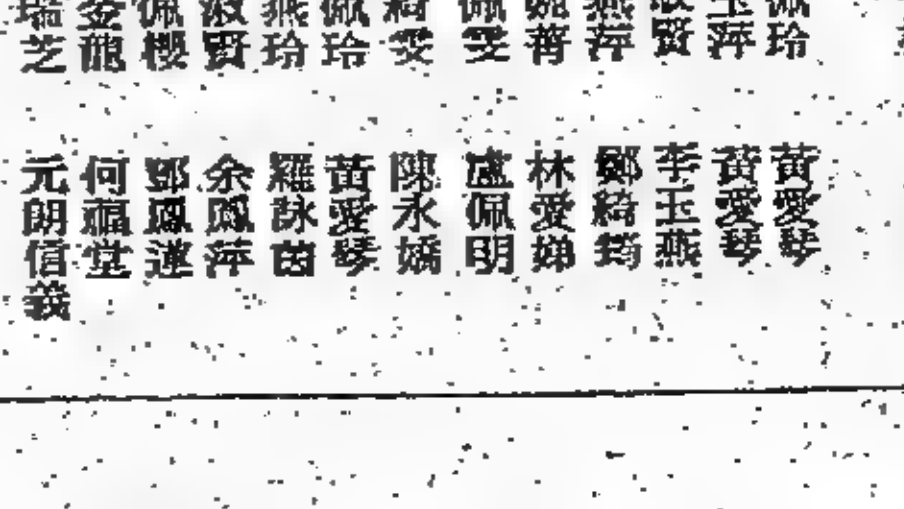 佩玲
玉萍
淑賢
燕萍
婉菁
佩雯
綺雯
佩玲
燕玲
淑賢
佩櫻
金龍
瑞芝
黃愛琴
黃愛琴
李玉燕
鄭綺筠
林愛娣
盧佩明
陳永嬌
黃愛琴
羅詠茵
余鳳萍
鄧鳳蓮
何福堂
元朗信義